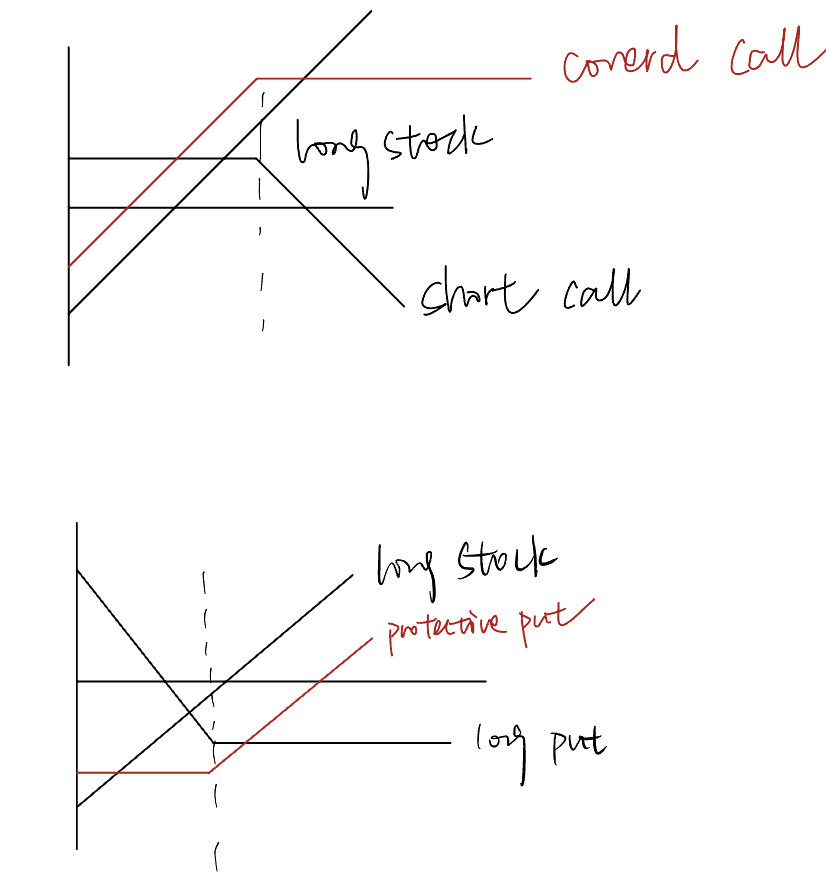 coverd call
long stock
short call
long stock
protective put
long put